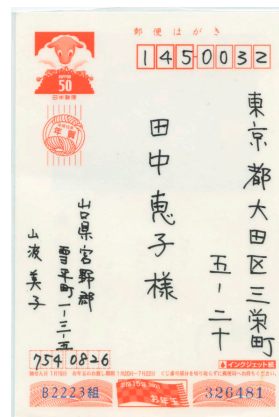 郵便はがき
1450032
50
日本郵便
年賀
東京都大田区三栄町
五-二十
田中恵子様
山口県宮野郡
雪平町一-三-五
山波美子
7540826
インクジェット紙
お年玉
B2223組
326481